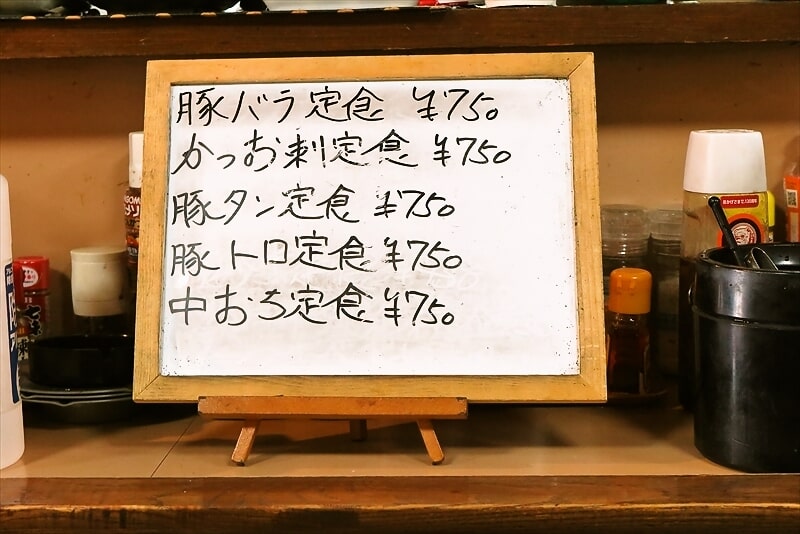 豚バラ定食 ¥750
かつお刺定食 ¥750
豚タン定食 ¥750
豚トロ定食 ¥750
中おち定食 ¥750